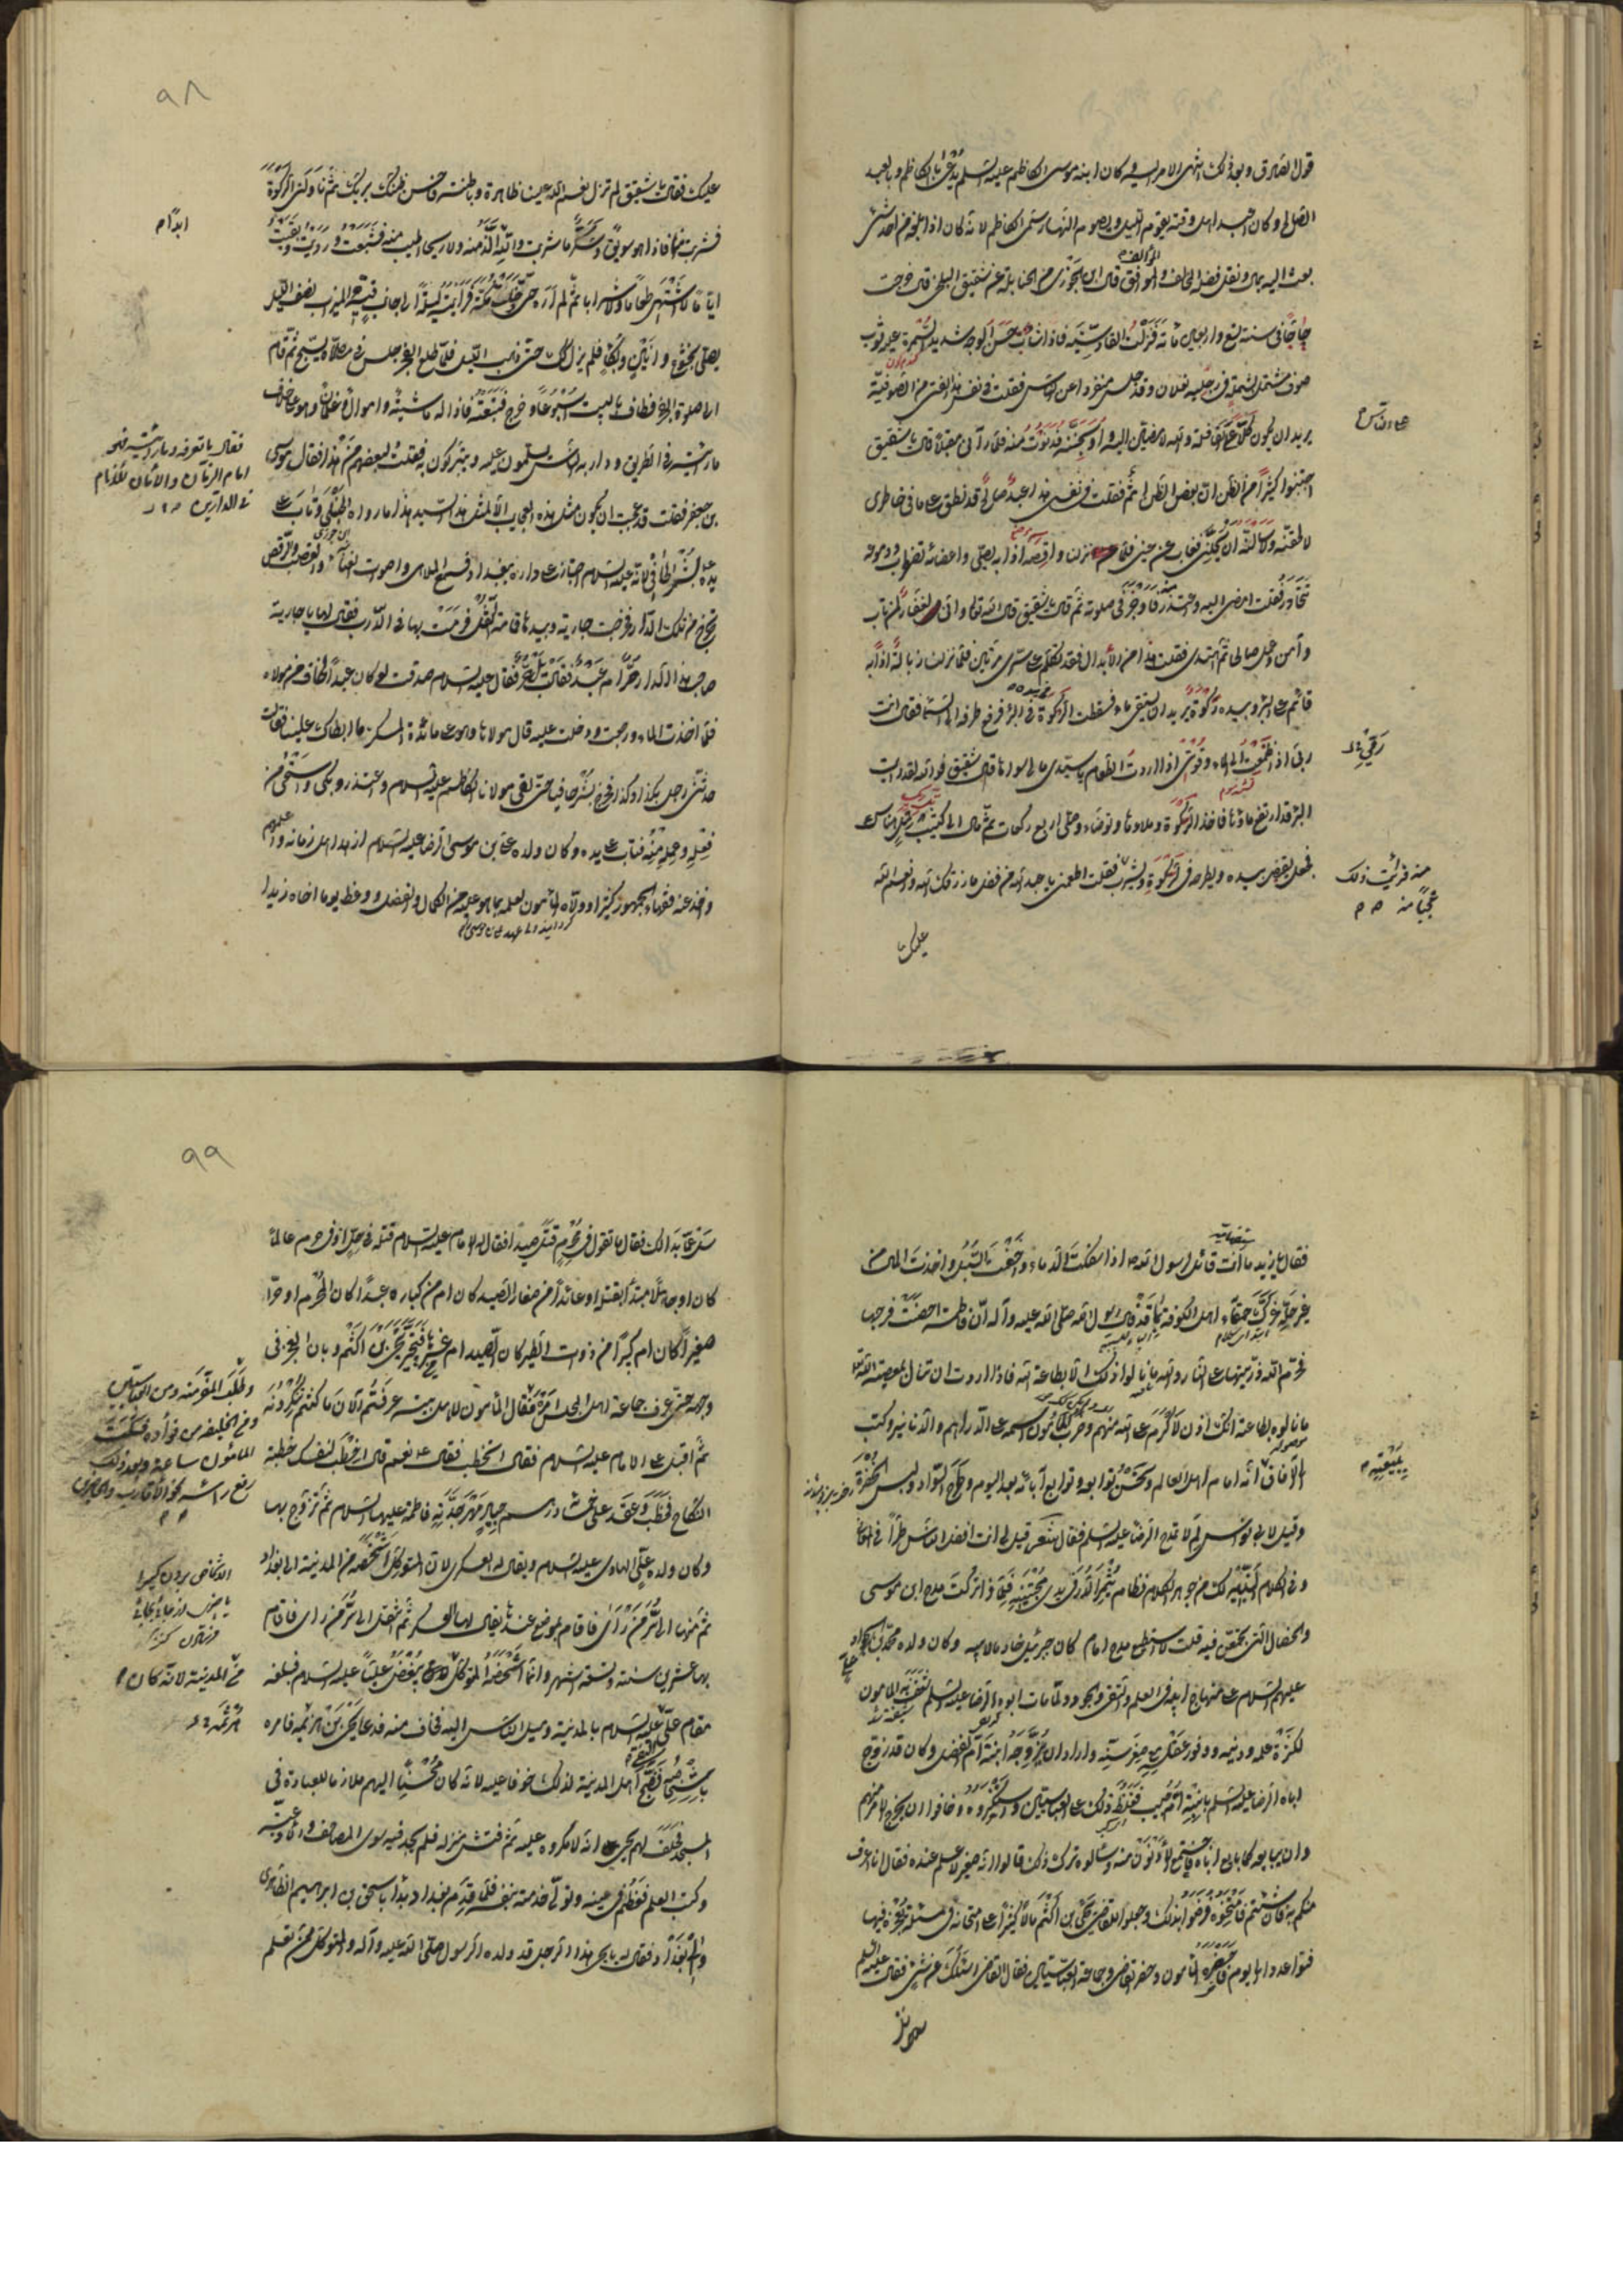 قول الصادق وبعد ذلك انتهى الامر اليه وكان ابنه موسى الكاظم عليه السلم يدعى بالكاظم وبالعبد
الصالح وكان اعبد اهل وقته يقوم الليل ويصوم النهار سمى الكاظم لانه كان اذا بلغه من احد شىء
بعث اليه بمال ونقل فضله المخالف والموافق قال ابن الجوزى من الحنابلة عن شقيق البلخى قال خرجت
حاجا فى سنة تسع واربعين مائة فنزلت القادسية فاذا شاب حسن الوجه شديد السمرة عليه ثوب
صوف مشتمل بشملة فى رجليه نعلان وقد جلس منفردا عن الناس فقلت فى نفسى هذا الفتى من الصوفية
يريد ان يكون كلا على القافلة والله لامضين اليه واوبخنه فدنوت منه فلما رآنى مقبلا قال يا شقيق
اجتنبوا كثيرا من الظن ان بعض الظن اثم فقلت فى نفسى هذا عبد صالح قد نطق على ما فى خاطرى
لالحقنه ولاسالنه ان يحللنى فغاب عن عينى فلما نزلنا واقصة اذا به يصلى واعضائه تضطرب ودموعه
تتحادر فقلت امضى اليه واعتذر فاوجز فى صلوته ثم قال يا شقيق قال الله تعالى وانى لغفار لمن تاب
وآمن وعمل صالحا ثم اهتدى فقلت هذا من الابدال فقد تكلم على سرى مرتين فلما نزلنا زبالة اذا به
قائم على البئر وبيده ركوة يريد ان يستقى ماء فسقطت الركوة فى البئر فرفع طرفه الى السماء فقال انت
ربى اذا ظمئت الى الماء وقوتى اذا اردت الطعام يا سيدى مالى سواها قال شقيق فوالله لقد رايت
البئر قد ارتفع ماؤها فاخذ الركوة وملاها وتوضاء وصلى اربع ركعات ثم مال الى كثيب رمل هناك
فجعل يقبض بيده ويطرحه فى الركوة ويشرب فقلت اطعمنى يا عبد الله من فضل ما رزقك الله وانعم الله
عليك يا
٩٨
عليك فقال يا شقيق لم تزل نعم الله علينا ظاهرة وباطنة فاحسن ظنك بربك ثم ناولنى الركوة
فشربت منها فاذا هو سويق وسكر ما شربت والله الذ منه ولا ريحا اطيب منه فشبعت ورويت وبقيت
اياما لا اشتهى طعاما ولا شرابا ثم لم اره حتى دخلت مكة فرايته ليلة الى جانب قبة الميزاب نصف الليل
يصلى بخشوع وانين وبكاء فلم يزل كذلك حتى ذهب الليل فلما طلع الفجر جلس فى مصلاه يسبح ثم قام
الى صلوة الفجر فطاف بالبيت اسبوعا وخرج فتبعته فاذا له حاشية واموال وغلمان وهو على خلاف
ما رايته فى الطريق ودار به الناس يسلمون عليه ويتبركون به فقلت لبعضهم من هذا فقال موسى
بن جعفر فقلت قد عجبت ان يكون مثل هذه العجايب الا لمثل هذا السيد هذا ما رواه الحنبلى وتاب على
يده بشر الحافى لانه عليه السلام اجتاز على داره ببغداد فسمع الملاهى واصوات الغناء والقصب والرقص
تخرج من تلك الدار فخرجت جارية وبيدها قمامة البقل فرمت بها فى الدرب فقال لها يا جارية
صاحب هذا الدار حر ام عبد فقالت بل حر فقال عليه السلام صدقت لو كان عبدا لخاف من مولاه
فلما اخذت الماء ورجعت ودخلت عليه قال مولاها وهو على مائدة السكر ما ابطاك علينا فقالت
حدثنى رجل بكذا وكذا فخرج بشر حافيا حتى لقى مولانا الكاظم عليه السلام واعتذر وبكى واستحى من
فعله وعمله منه فتاب على يده وكان ولده على بن موسى الرضا عليه السلام ازهد اهل زمانه واعلمهم
واخذ عنه فقهاء الجمهور كثيرا وولاه المأمون لعلمه بما هو عليه من الكمال والفضل ووعظ يوما اخاه زيدا
فقال يا زيد ما انت قائل لرسول الله ص اذا سفكت الدماء واخفت السبل واخذت المال من
غير حله غرك حمقاء اهل الكوفة وقد قال رسول الله صلى الله عليه وآله ان فاطمة احصنت فرجها
فحرم الله ذريتها على النار والله ما نالوا ذلك الا بطاعة الله فاذا اردت ان تنال بمعصية الله
ما نالوه بطاعة انك اذن لاكرم على الله منهم وضرب المأمون اسمه على الدراهم والدنانير وكتب
الى الآفاق
وقيل لابى نواس لم لا تمدح الرضا عليه السلم فقال شعر قيل لى انت افضل الناس طرا فى المعانى
وفى الكلام البديه لك من جوهر الكلام نظام يثمر الدر فى يدى مجتنيه فلماذا تركت مدح ابن موسى
والخصال التى تجمعن فيه قلت لا استطيع مدح امام كان جبرئيل خادما لابيه وكان ولده محمد الجواد
عليهم السلام على منهاج ابيه فى العلم والتقى والجود ولما مات ابوه الرضا عليه السلم شغف به المأمون
لكثرة علمه ودينه ووفور عقله مع صغر سنه واراد ان يزوجه ابنته ام الفضل وكان قد زوج
اباه الرضا عليه السلم بابنته ام حبيب فغلظ ذلك على العباسيين واستكبروه وخافوا ان يخرج الامر منهم
وان يبايعه كما بايع اباه فاجتمع الادنون منه وسألوه ترك ذلك قالوا انه صغير لا علم عنده فقال انا اعرف
منكم به فان شئتم فامتحنوه فرضوا بذلك وجعلوا للقاضى يحيى بن اكثم مالا كثيرا على امتحانه فى مسئلة يعجزه فيها
فتواعدوا الى يوم فاحضره المأمون وحضر القاضى وجماعة العباسيين فقال القاضى اسئلك عن شىء فقال عليه السلم
٩٩
سل عما بدا لك فقال ما تقول فى محرم قتل صيدا فقال الامام عليه السلام قتله فى حل او فى حرم عالما
كان او جاهلا مبتدأ بقتله او عائدا من صغار الصيد كان ام من كباره عبدا كان المحرم او حرا
صغيرا كان ام كبيرا من ذوات الطير كان الصيد ام غيرها فتحير يحيى بن اكثم وبان العجز فى
وجهه حتى عرف جماعة اهل المجلس امره فقال المأمون لاهل بيته عرفتم الآن ما كنتم تنكرونه
ثم اقبل على الامام عليه السلام فقال اتخطب فقال نعم قال اخطب لنفسك خطبة
النكاح فخطب وعقد على خمسمائة درهم جياد مهر جدته فاطمة عليها السلام ثم تزوج بها
وكان ولده على الهادى عليه السلام ويقال له العسكرى لان المتوكل اشخصه من المدينة الى بغداد
ثم منها الى سر من رأى فاقام بموضع عندها يقال لها العسكر ثم انتقل الى سر من رأى فاقام
بها عشرين سنة وتسعة اشهر وانما اشخصه المتوكل لانه كان يبغض عليا عليه السلام فبلغه
مقام على عليه السلام بالمدينة وميل الناس اليه فخاف منه فدعا يحيى بن هرثمة فامره
باشخاصه فضج اهل المدينة لذلك خوفا عليه لانه كان محسنا اليهم ملازما للعبادة فى
المسجد فحلف لهم يحيى انه لا مكروه عليه ثم فتش منزله فلم يجد فيه سوى المصاحف وادعية
وكتب العلم فعظم فى عينه وتولى خدمته بنفسه فلما قدم بغداد بدأ باسحق بن ابراهيم الطاهرى
والى بغداد فقال له يا يحيى هذا الرجل قد ولده الرسول صلى الله عليه وآله والمتوكل ممن تعلم